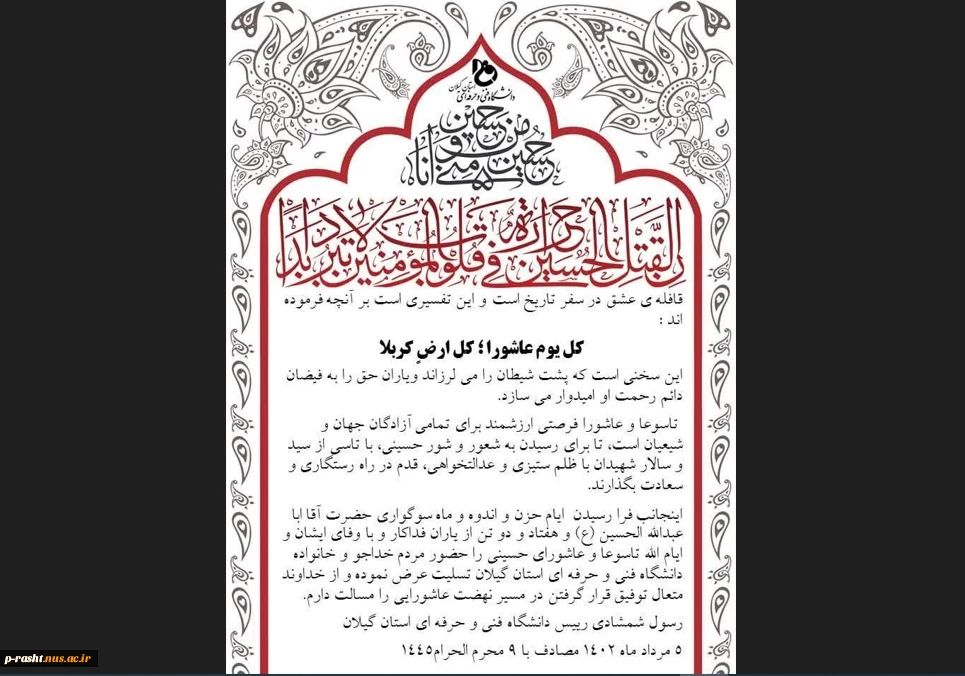 دانشگاه فنی و حرفه‌ای استان گیلان
حسین منی و أنا من حسین
إن لقتل الحسین حرارة في قلوب المؤمنین لا تبرد ابدا
قافله ی عشق در سفر تاریخ است و این تفسیری است بر آنچه فرموده
اند :
کل یوم عاشورا؛ کل ارضٍ کربلا
این سخنی است که پشت شیطان را می لرزاند ویاران حق را به فیضان
دائم رحمت او امیدوار می سازد.
تاسوعا و عاشورا فرصتی ارزشمند برای تمامی آزادگان جهان و
شیعیان است، تا برای رسیدن به شعور و شور حسینی، با تاسی از سید
و سالار شهیدان با ظلم ستیزی و عدالتخواهی، قدم در راه رستگاری و
سعادت بگذارند.
اینجانب فرا رسیدن ایام حزن و اندوه و ماه سوگواری حضرت آقا ابا
عبدالله الحسین (ع) و هفتاد و دو تن از یاران فداکار و با وفای ایشان و
ایام الله تاسوعا و عاشورای حسینی را حضور مردم خداجو و خانواده
دانشگاه فنی و حرفه ای استان گیلان تسلیت عرض نموده و از خداوند
متعال توفیق قرار گرفتن در مسیر نهضت عاشورایی را مسالت دارم.
رسول شمشادی رییس دانشگاه فنی و حرفه ای استان گیلان
۵ مرداد ماه ۱۴۰۲ مصادف با ۹ محرم الحرام۱۴۴۵
p-rasht.nus.ac.ir